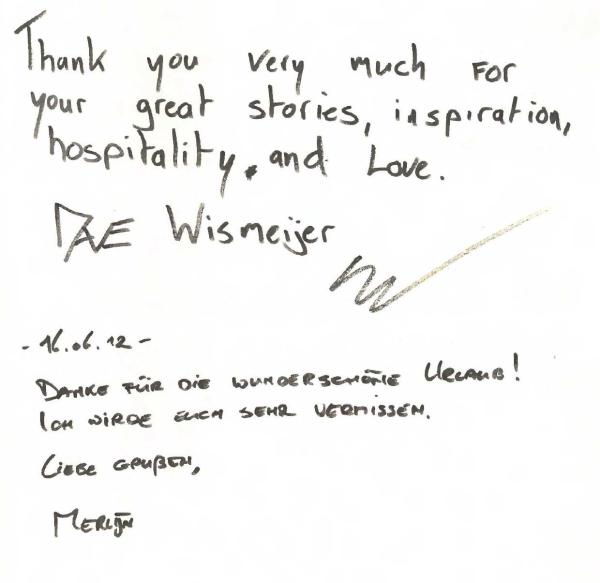 Thank you very much For
your great stories, inspiration,
hospitality, and Love.
DAVE Wismeijer
- 16.06.12 -
DANKE FÜR DIE WUNDERSCHÖNE URLAUB!
ICH WIRDE EUCH SEHR VERMISSEN.
LIEBE GRUßEN,
MERLIJN